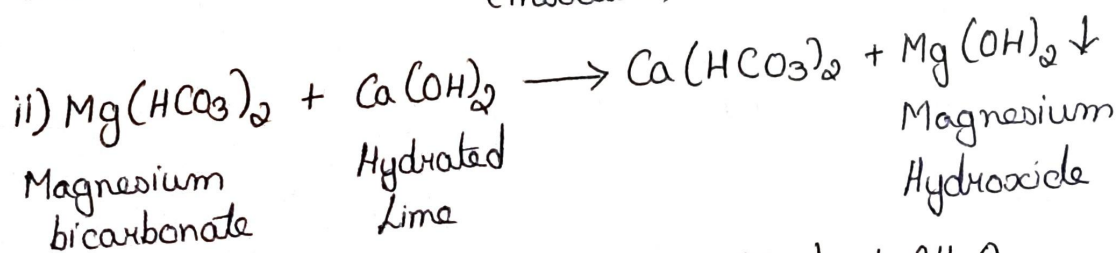 ii) Mg(HCO₃)₂ + Ca(OH)₂ ⟶ Ca(HCO₃)₂ + Mg(OH)₂ ↓
Magnesium bicarbonate
Hydrated Lime
Magnesium Hydroxide